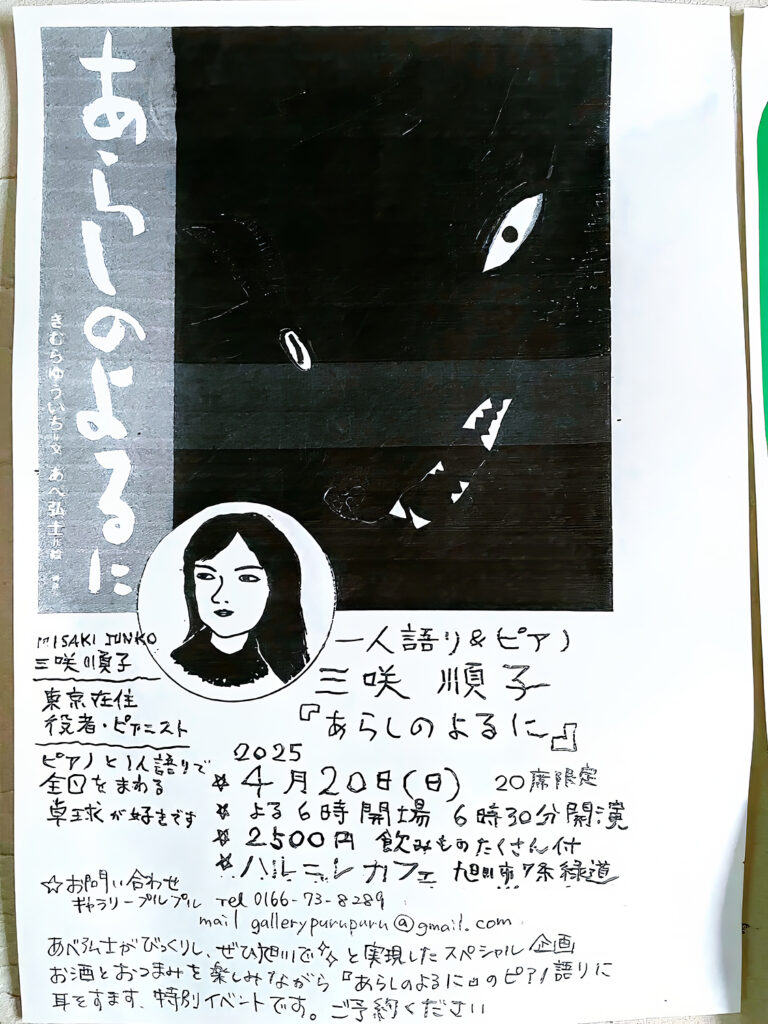 あらしのよるに
きむらゆういち 文 あべ弘士 絵
MISAKI JUNKO
三咲順子
東京在住
役者・ピアニスト
ピアノと1人語りで
全国をまわる
卓球が好きです
一人語り&ピアノ
三咲 順子
『あらしのよるに』
2025
☆ 4月20日(日) 20席限定
☆ よる6時開場 6時30分開演
☆ 2500円 飲みものたくさん付
☆ ハルニレカフェ 旭川市7条緑道
☆お問い合わせ
ギャラリープルプル Tel 0166-73-8289
mail gallerypurupuru@gmail.com
あべ弘士がびっくりし、ぜひ旭川で、と実現したスペシャル企画
お酒とおつまみを楽しみながら『あらしのよるに』のピアノ語りに
耳をすます、特別イベントです。ご予約ください